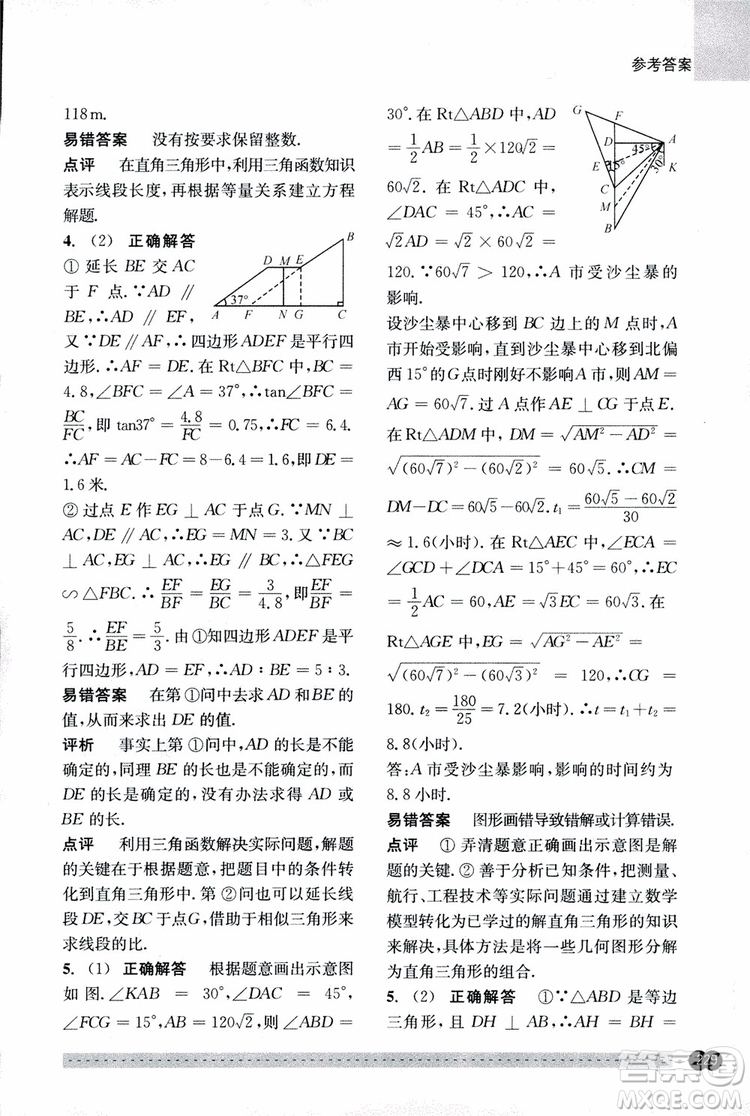 参考答案
118 m.
易错答案 没有按要求保留整数.
点评 在直角三角形中,利用三角函数知识
表示线段长度,再根据等量关系建立方程
解题.
4. (2) 正确解答
① 延长 BE 交 AC
于 F 点. ∵AD ∥
BE,∴AD ∥ EF,
B
D M E
37°
A F N G C
又∵DE ∥ AF,∴四边形 ADEF 是平行四
边形. ∴AF = DE. 在 Rt△FBC 中,BC =
4.8,∠BFC = ∠A = 37°,∴tan∠BFC =
BC/FC,即 tan37° = 4.8/FC = 0.75,∴FC = 6.4.
∴AF = AC−FC = 8−6.4 = 1.6,∴DE =
1.6 米.
② 过点 E 作 EG ⊥ AC 于点 G. ∵MN ⊥
AC,DE ∥ AC,∴EG = MN = 3. 又∵BC ⊥
AC,EG ⊥ AC,∴EG ∥ BC,∴△FEG
∽ △FBC. ∴ EF/BF = EG/BC = 3/4.8,即 EF/BF =
5/8. ∴ EF/BE = 5/3. 由①知四边形 ADEF 是平
行四边形,AD = EF,∴AD : BE = 5 : 3.
易错答案 在第①问中去求 AD 和 BE 的
值,从而来求出 DE 的值.
评析 事实上第①问中,AD 的长是不能
确定的,同理 BE 的长也是不能确定的.而
DE 的长是确定的,没有办法求得 AD 或
BE 的长.
点评 利用三角函数解决实际问题,解题
的关键在于根据题意,把题目中的条件转
化到直角三角形中. 第②问也可以延长线
段 DE,交 BC 于点G,借助于相似三角形来
求线段的比.
5. (1) 正确解答 根据题意画出示意图
如图. ∠KAB = 30°,∠DAC = 45°,
∠FCG = 15°,AB = 120√2,∴∠ABD =
30°. 在 Rt△ABD 中,AD
= 1/2 AB = 1/2 × 120√2 =
60√2. 在 Rt△ADC 中,
∠DAC = 45°,∴AC =
√2AD = √2 × 60√2 =
G F
D A
45°
E 15° K
30°
C
M
B
120. ∵60√7 > 120,∴A 市受沙尘暴的
影响.
设沙尘暴中心移到 BC 边上的 M 点时,A
市开始受影响,直到沙尘暴中心移到北偏
西 15°的 G 点时刚好不影响 A 市,则 AM =
AG = 60√7. 过 A 点作 AE ⊥ CG 于点 E.
在 Rt△ADM 中,DM = √(AM²−AD²) =
√((60√7)²−(60√2)²) = 60√5. ∴CM =
DM−DC = 60√5−60√2. ∴t₁ = (60√5−60√2)/30
≈ 1.6(小时). 在 Rt△AEC 中,∠ECA =
∠GCD+∠DCA = 15°+45° = 60°,∴EC
= 1/2 AC = 60,AE = √3EC = 60√3. 在
Rt△AGE 中,GE = √(AG²−AE²) =
√((60√7)²−(60√3)²) = 120,∴CG =
180. t₂ = 180/25 = 7.2(小时). ∴t = t₁+t₂ =
8.8(小时).
答:A 市受沙尘暴影响,影响的时间约为
8.8 小时.
易错答案 图形画错导致错解或计算错误.
点评 ① 弄清题意正确画出示意图是解
题的关键. ② 善于分析已知条件,把测量、
航行、工程技术等实际问题通过建立数学
模型转化为已学过的解直角三角形的知识
来解决,具体方法是将一些几何图形分割
为直角三角形的组合.
5. (2) 正确解答 ①∵△ABD 是等边
三角形,且 DH ⊥ AB,∴AH = BH =
答案圈
MXQE.COM